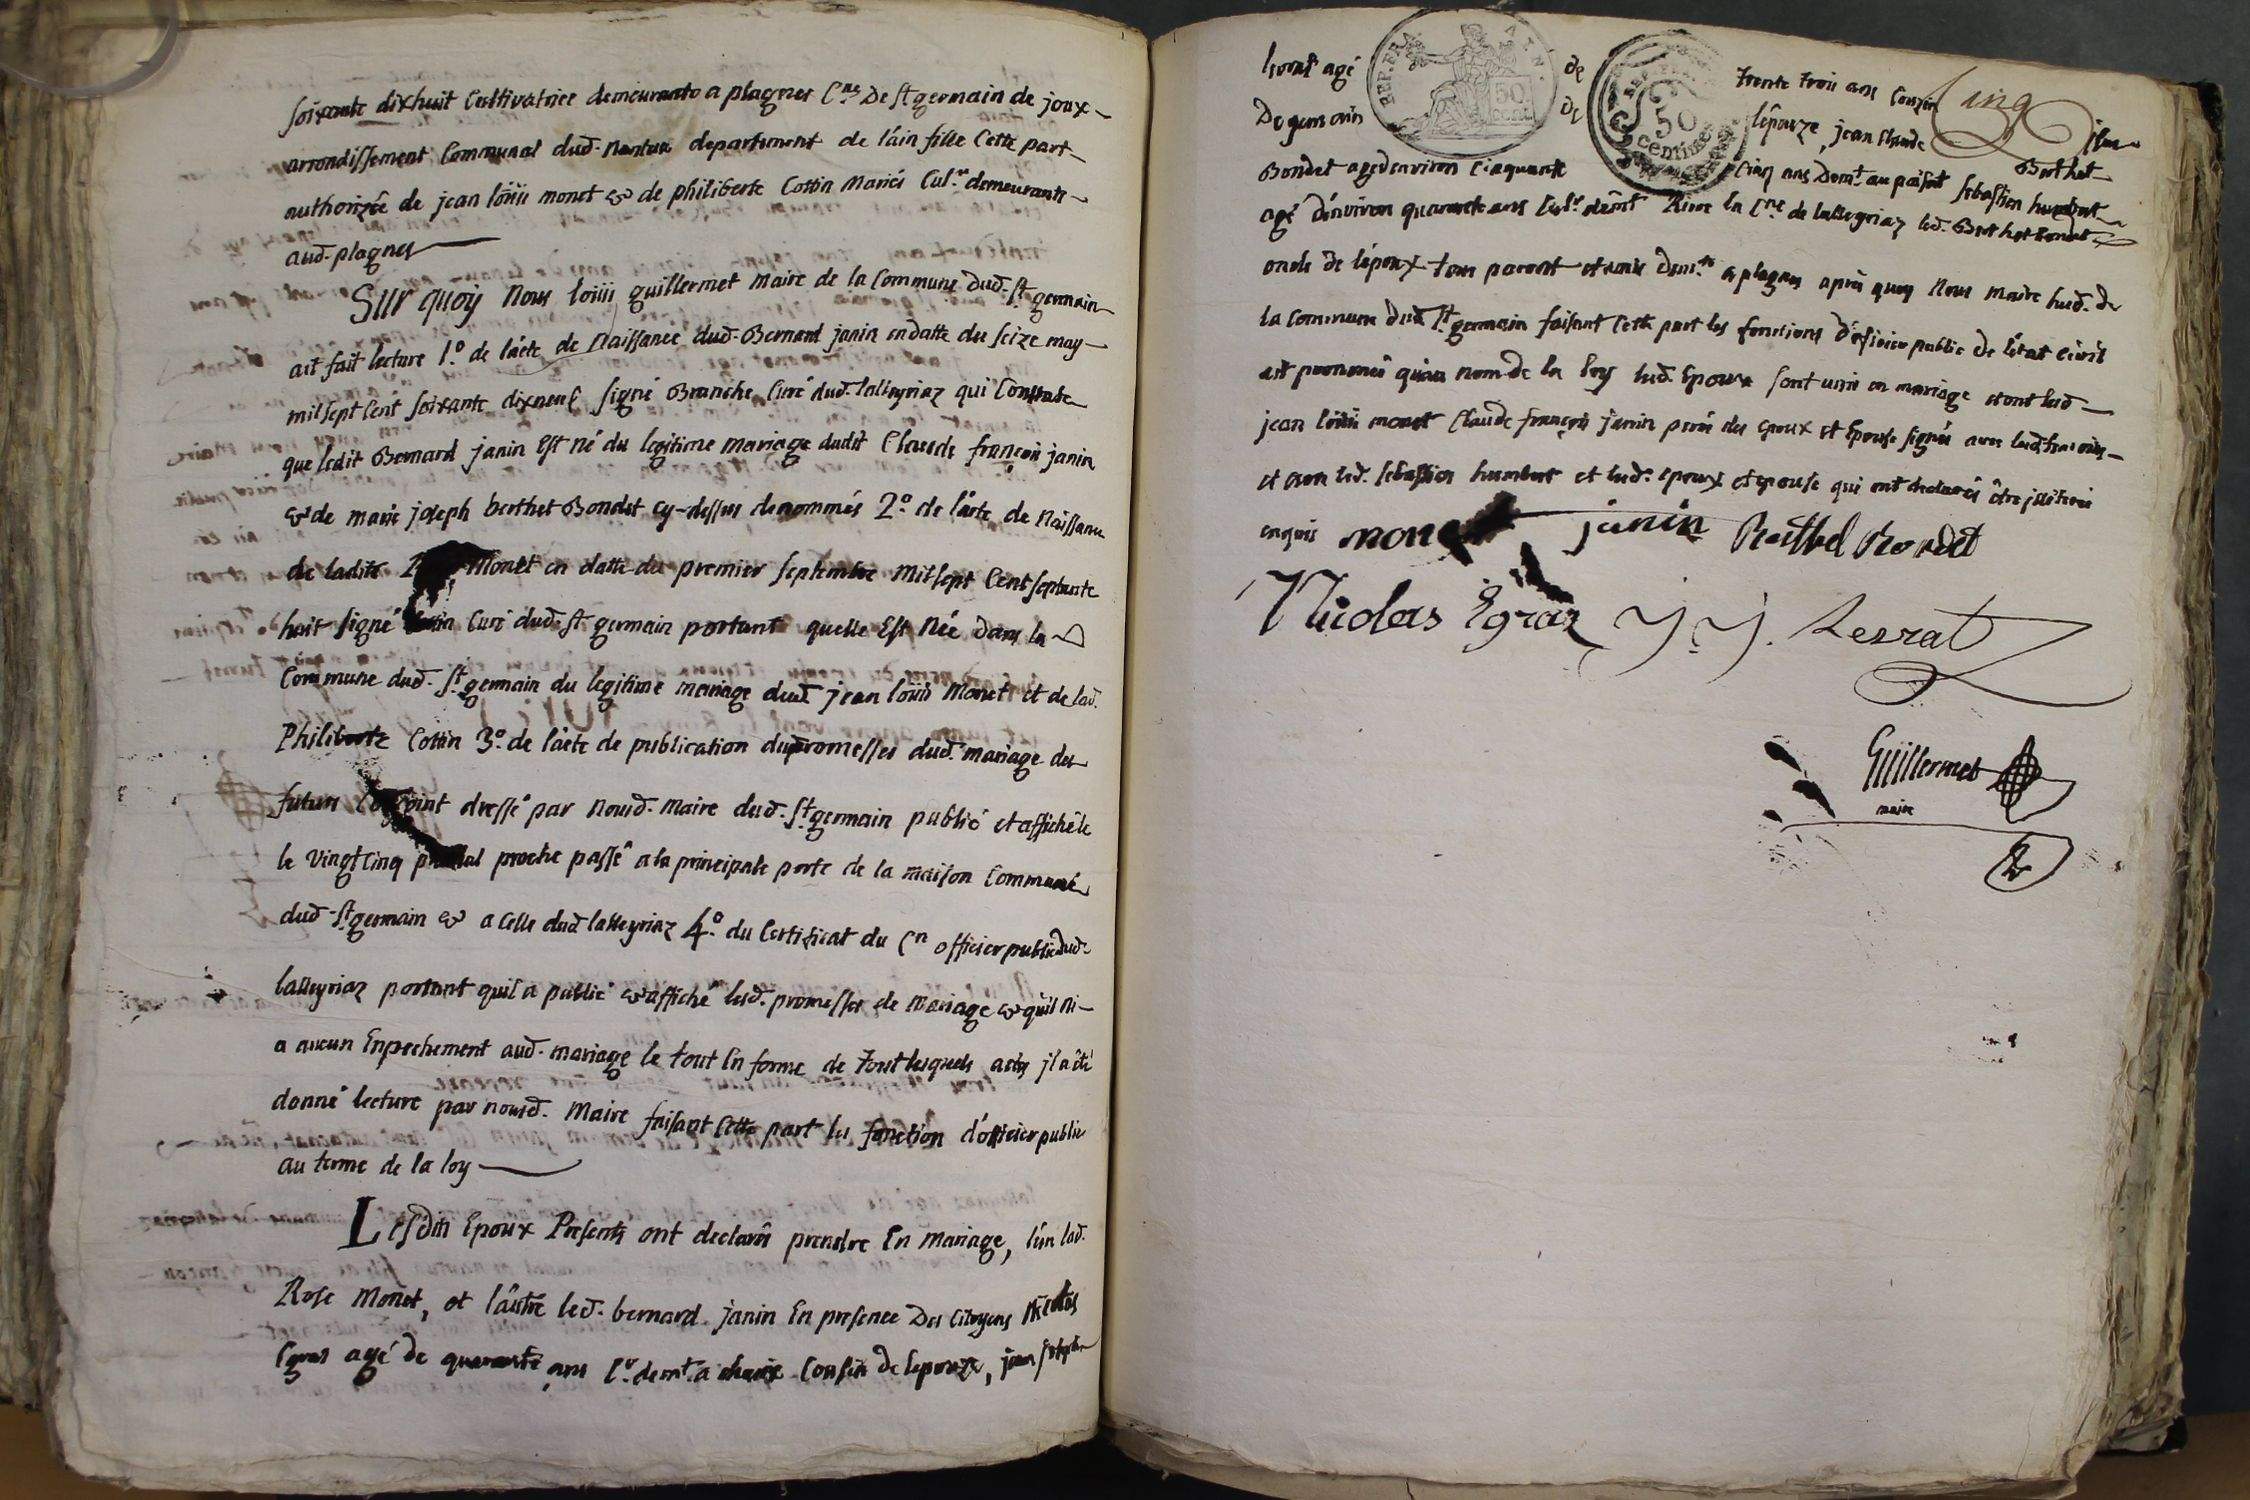 soixante dixhuit Cultivatrice demeurante a plagnes Cne De st germain de joux
arrondissement Communal dud. nantua departement de l'ain fille Cette part
authorizée de jean loüis monet & de philiberte Cottin mariés Cul.rs demeurants
aud. plagnes
Sur quoy nous loüis guillermet maire de la Commune dud. st germain
ait fait lecture 1.º de lácte de naissance dud. Bernard janin en datte du seize may
mil sept Cent soixante dixneuf signé Branche Curé dud. lalleyriaz qui Constate
que ledit Bernard janin Est né du legitime mariage dudit Claude françois janin
& de marie joseph berthet Bondet cy-dessus denommés 2.º de lácte de naissance
de ladite Monet en datte du premier septembre mil sept Cent septante
huit signé Curé dud. st germain portant quelle Est née dans la
Commune dud. st germain du legitime mariage dud. jean loüis Monet et de lad.
Philiberte Cottin 3.º de lácte de publication du promesses dud. mariage des
futurs dressé par nousd. maire dud. st germain publié et affiché le
le vingt Cinq proche passé a la principale porte de la maison Commune
dud. st germain & a Celle dud lalleyriaz 4.º du Certificat du Cn officier public dud.
lalleyriaz portant quil a publié & affiché lesd. promesses de mariage & quil ni
a aucun Enpechement aud. mariage le tout En forme de tout lesquels actes jl a été
donné lecture par nousd. Maire faisant Cette part les fonction d'officier public
au terme de la loy
Lesdits Epoux Presents ont declarés prendre En mariage, lún lad.
Rose Monet, et láutre led. bernard janin En presence Des Citoyens Nicolas
Egraz agé de quarante ans C.r dem.t a Cousin de lepouze, jean joseph
agé de trente trois ans Cousin
De germain de lépouze, jean Claude Berthet
Bondet aged environ Cinquante Cinq ans Dem.t au sebastien humbert
agé dénviron quarante ans Cul.r la Cne de lalleyriaz led. Berthet Bondet
oncle de lépoux tous parent et amis Dem.ts a plagnes après quoy nous maire sud. de
la Commune dud. st germain faisant Cette part les fonctions d'oficier public de létat Civil
ait prononcé quau nom de la loy lesd. Epoux sont unis en mariage et ont lesd
jean loüis monet Claude françois janin peres des epoux et Epouse signés avec lesd.
et non led. sebastien humbert et lesd. epoux et epouse qui ont declarés être
enquis monet janin Berthet Bondet
Nicolas Egraz J. J.
Guillermet
maire
REP. FRA.
50
cent.
50
centimes